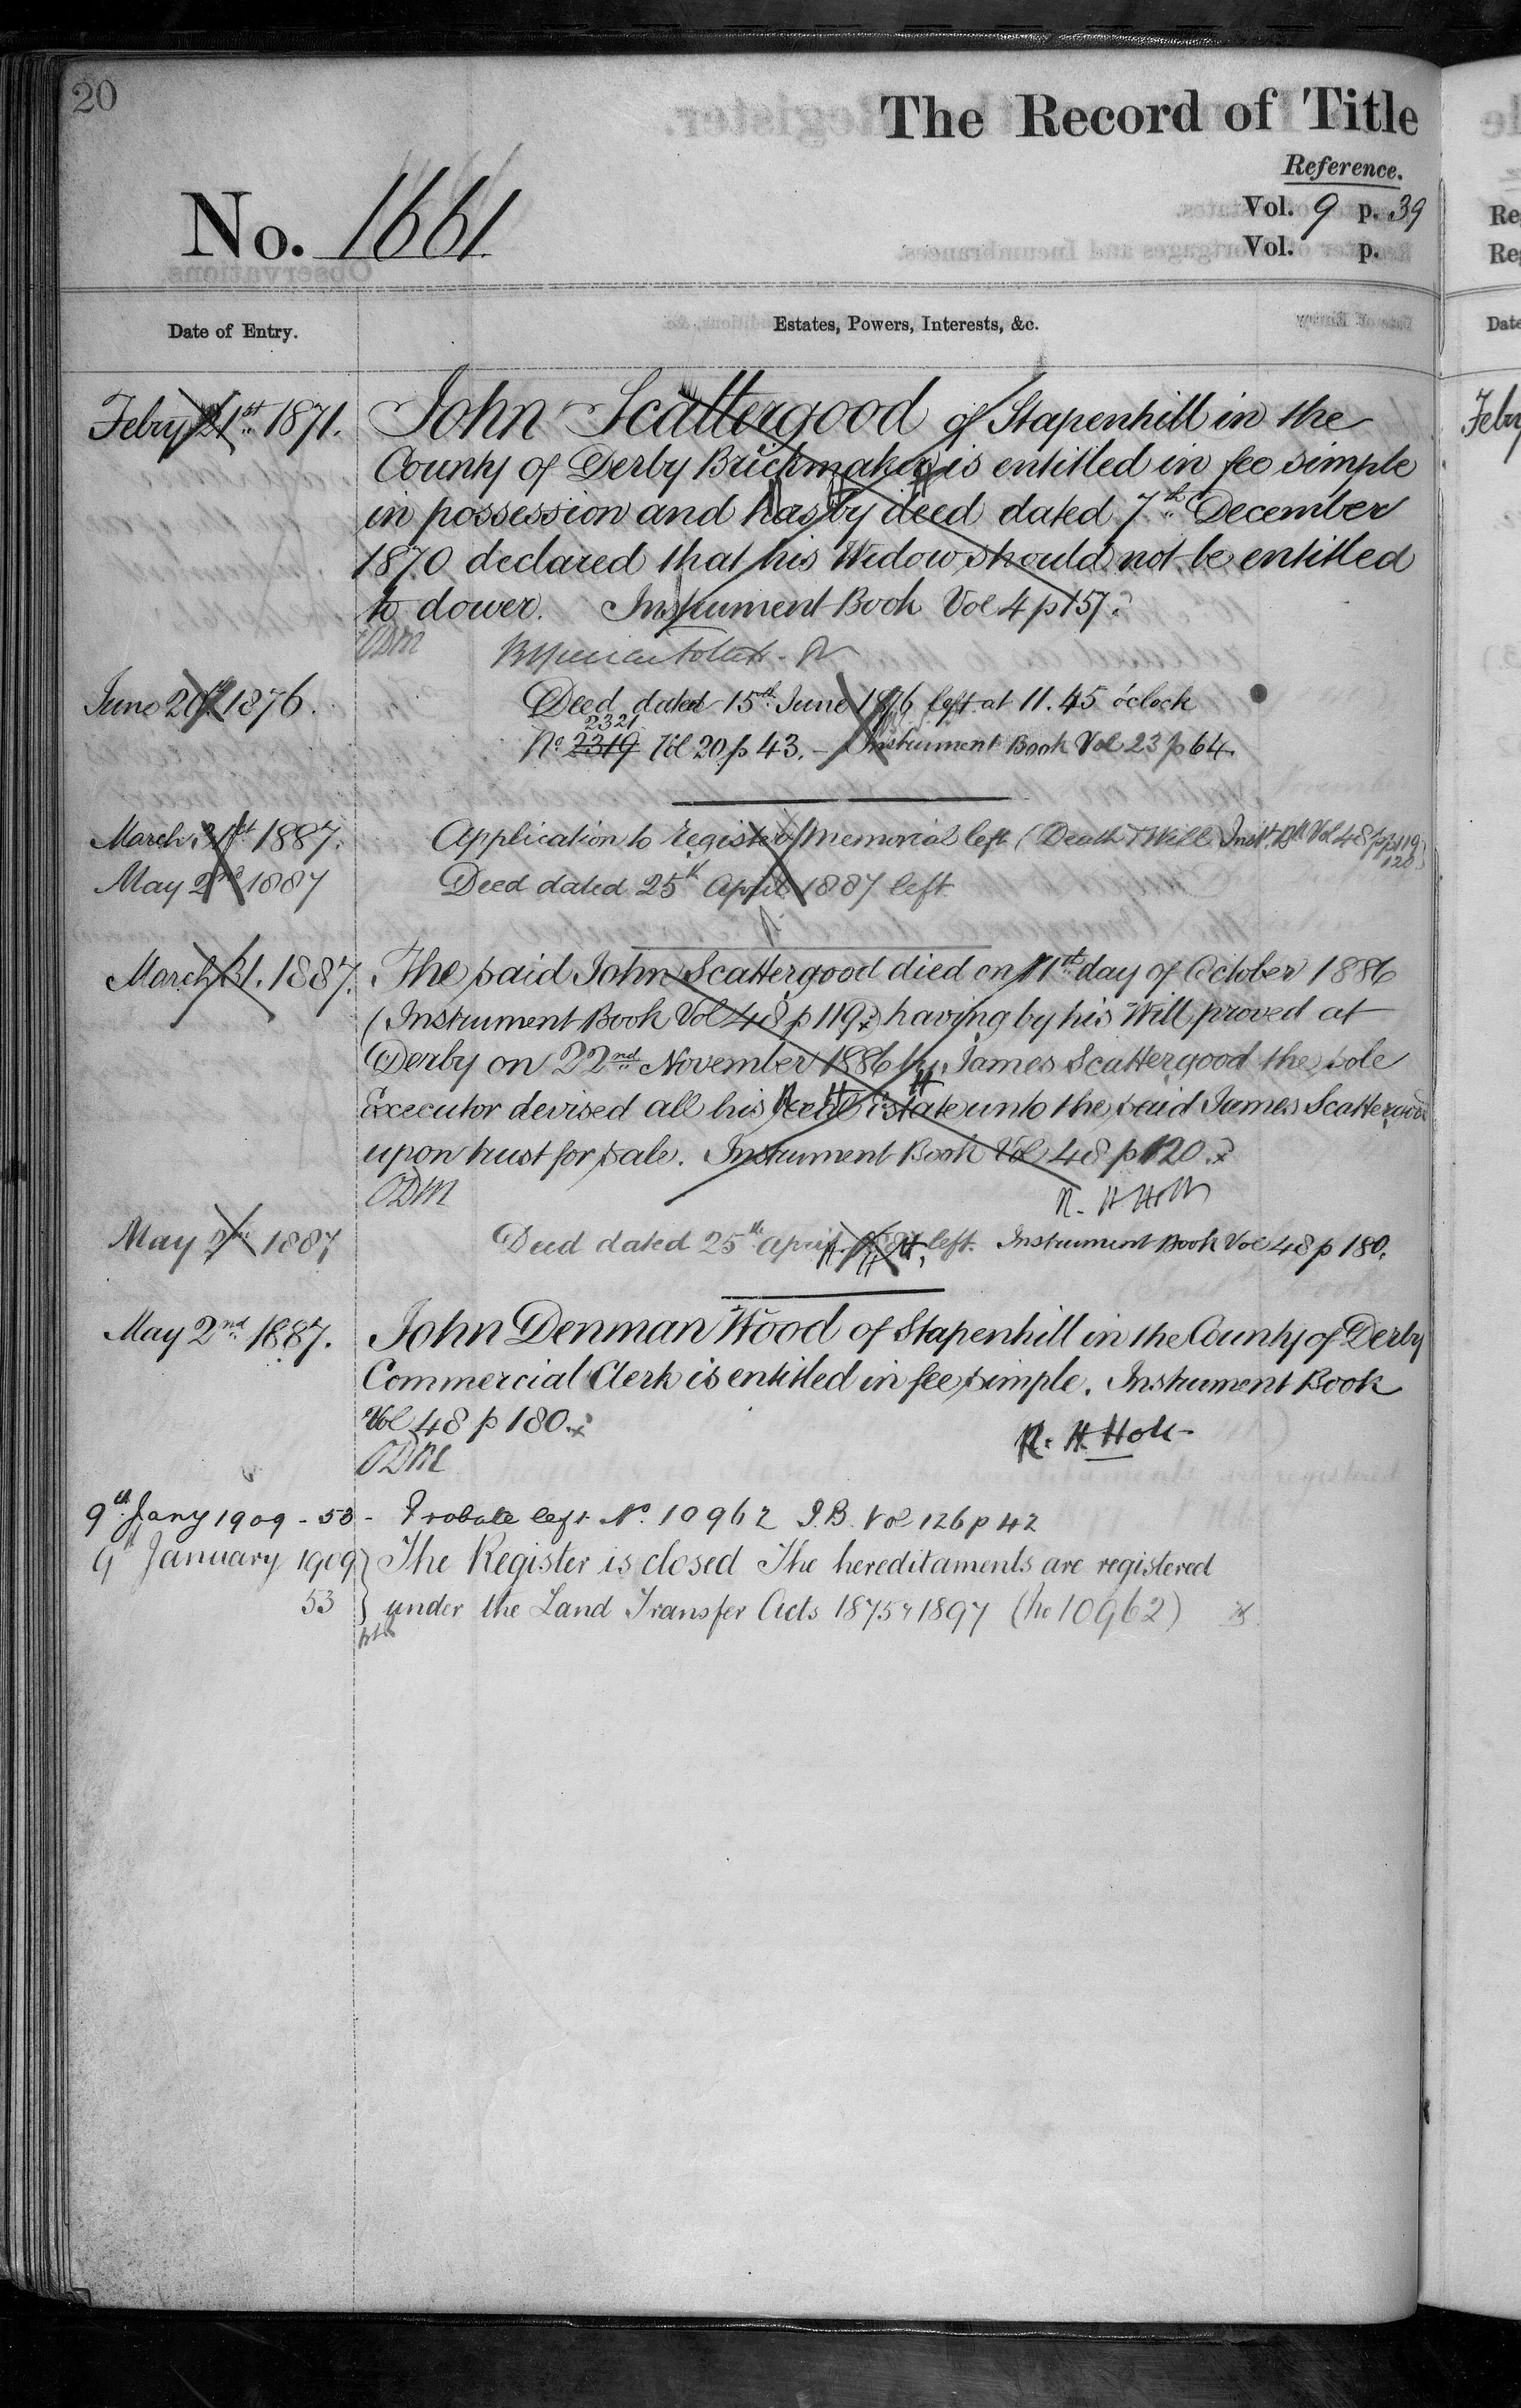 20
The Record of Title
Reference.
No. 1661
Vol. 9 p. 39
Vol. p.
Date of Entry.
Estates, Powers, Interests, &c.
Febry 21st 1871. John Scattergood of Stapenhill in the
County of Derby Brickmaker is entitled in fee simple
in possession and has by deed dated 7th December
1870 declared that his Widow should not be entitled
to dower. Instrument Book Vol 4 p 157.
ODM
June 20th 1876. Deed dated 15th June 1876 left at 11.45 o'clock
2321
No 2319 Vol 20 p 43. – Instrument Book Vol 23 p 64.
March 31st 1887. Application to register Memorial left (Death & Will Inst. Bk Vol 48 pp 119
120)
May 2nd 1887 Deed dated 25th April 1887 left
March 31. 1887. The said John Scattergood died on 11th day of October 1886
(Instrument Book Vol 48 p 119) having by his Will proved at
Derby on 22nd November 1886 by James Scattergood the sole
Executor devised all his real estate unto the said James Scattergood
upon trust for sale. Instrument Book Vol 48 p 120.
ODM R. H. Holt
May 2nd 1887 Deed dated 25th April 1887 left. Instrument Book Vol 48 p 180.
May 2nd 1887. John Denman Wood of Stapenhill in the County of Derby
Commercial Clerk is entitled in fee simple. Instrument Book
Vol 48 p 180.
ODM R. H. Holt
9th Jany 1909 - 53 - Probate left No. 10962 I.B. Vol 126 p 42
9th January 1909 } The Register is closed The hereditaments are registered
53 } under the Land Transfer Acts 1875 & 1897 (No 10962)
Re
Re
Date
Febry